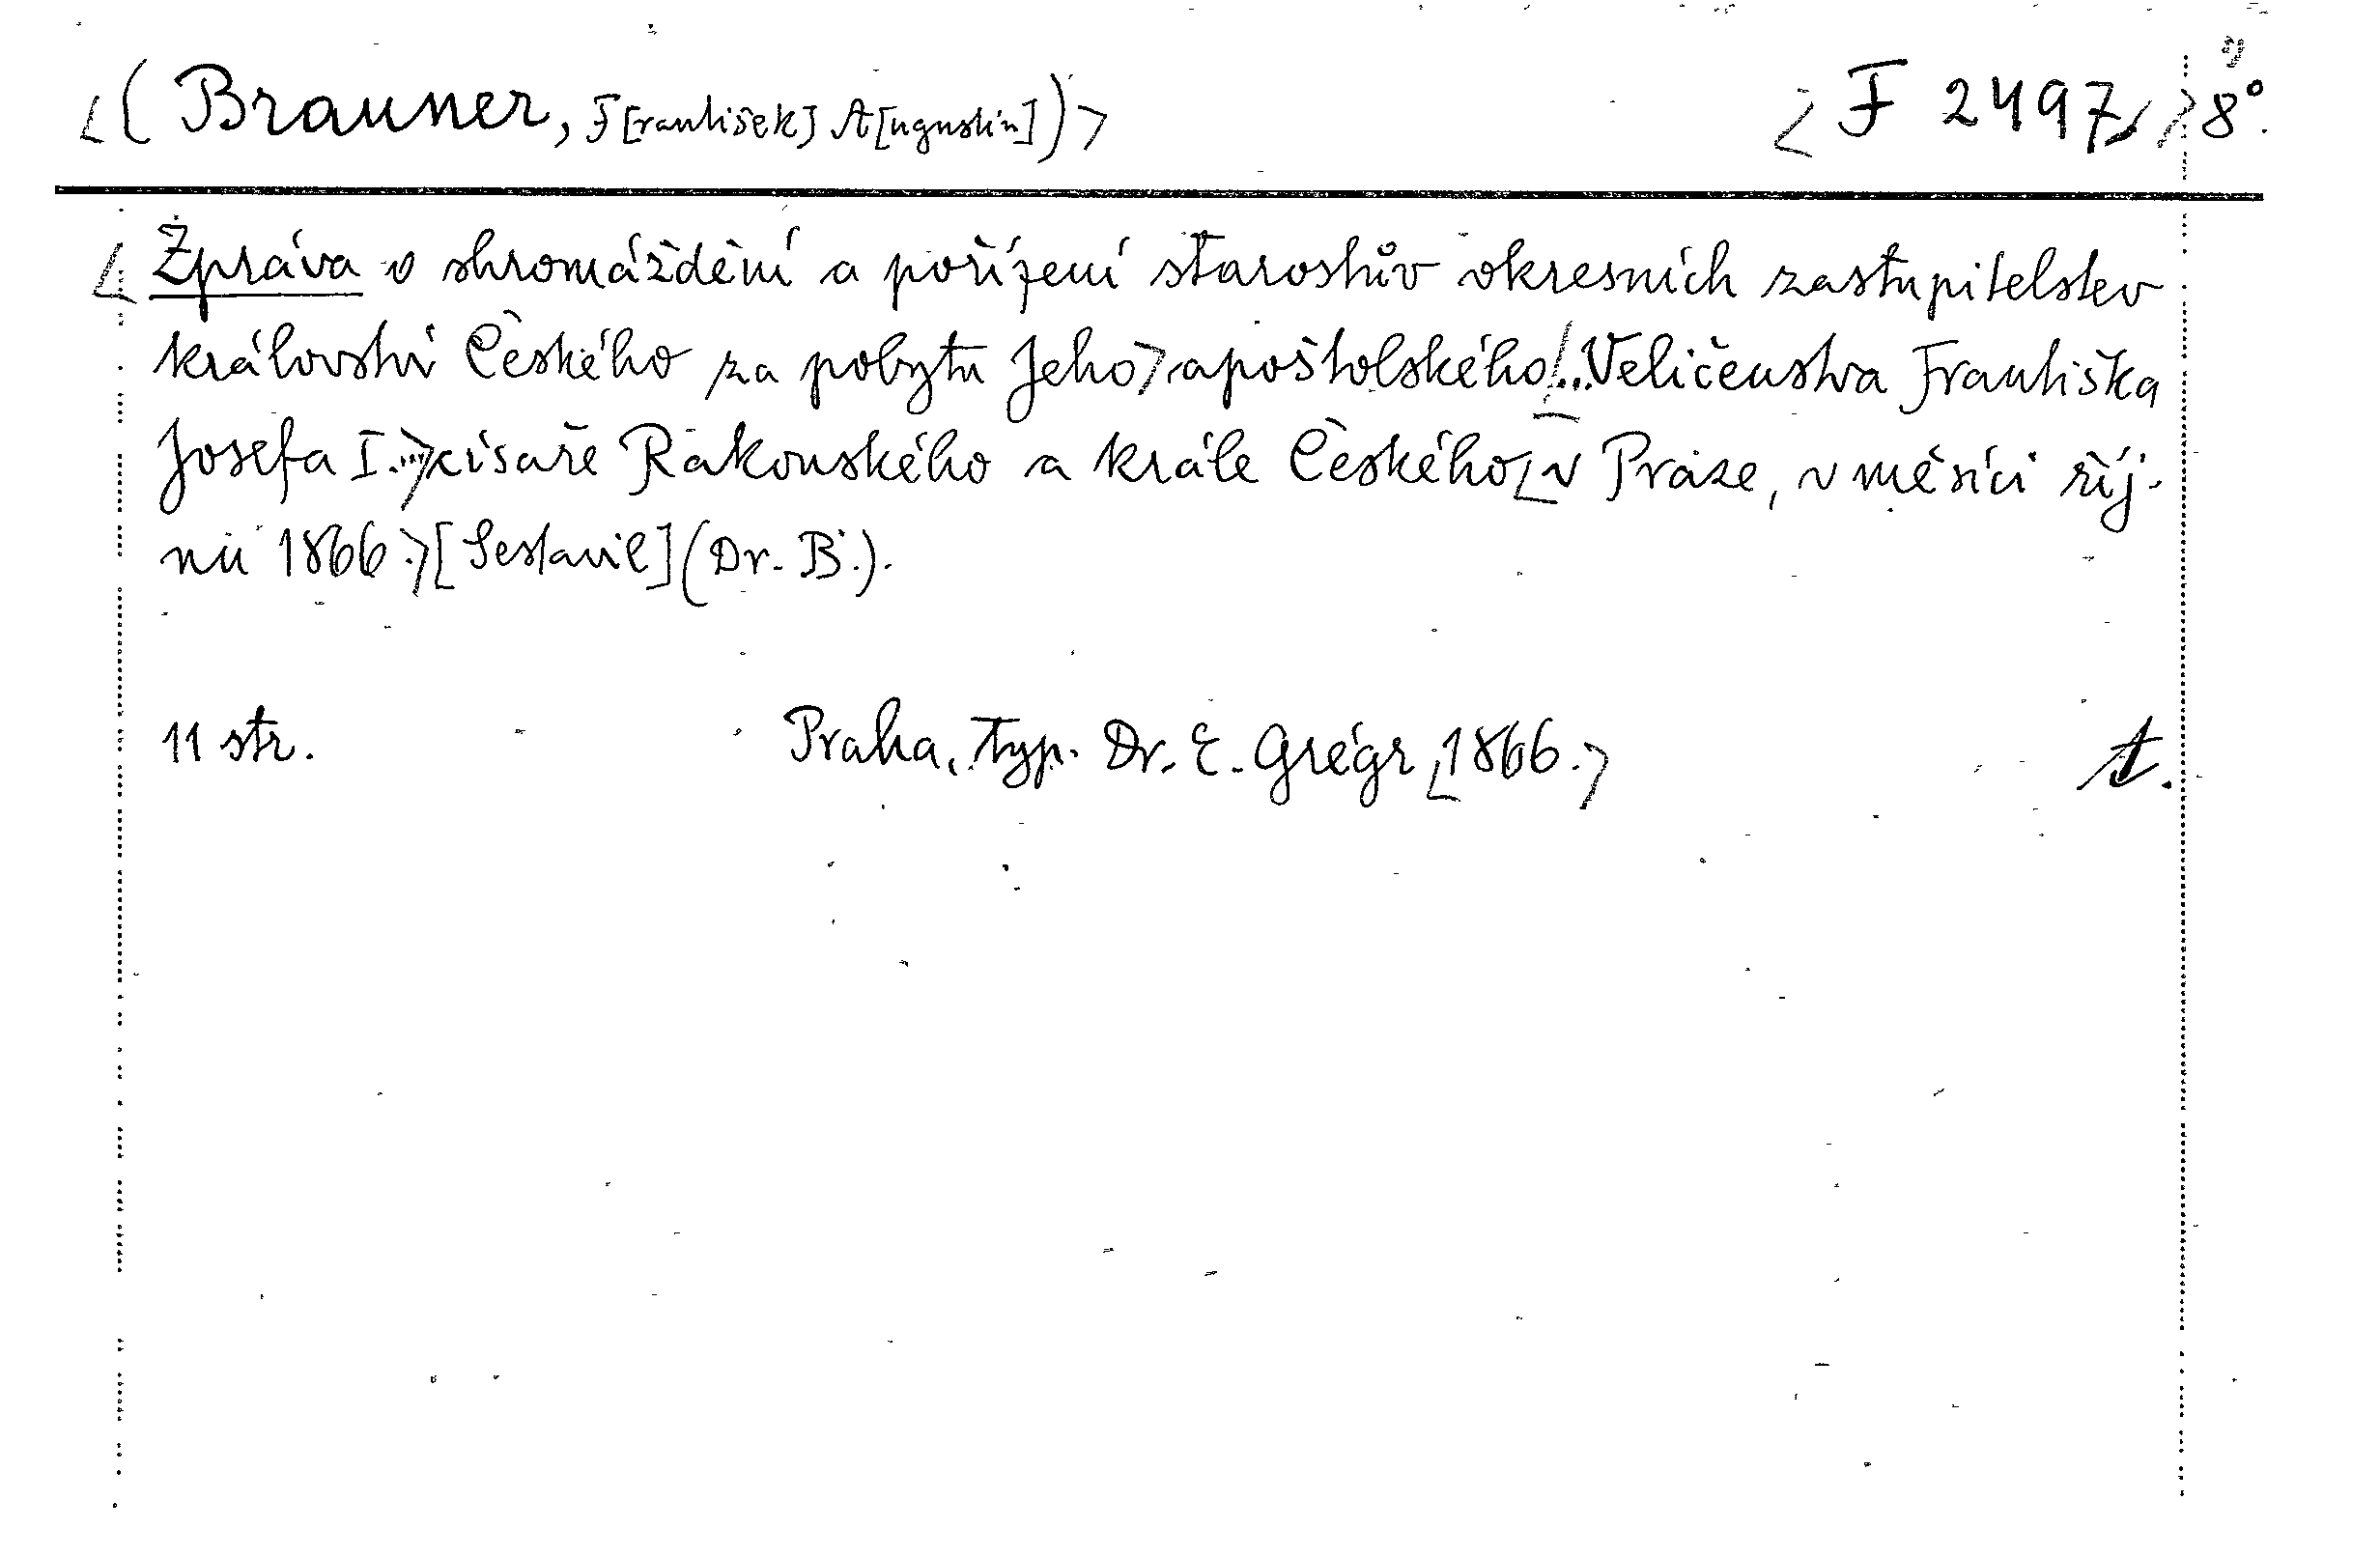 (Brauner, F[rantišek] A[ugustin]) F 2497, 8°.
Zpráva o shromáždění a pořízení starostův okresních zastupitelstev
království Českého za pobytu Jeho apoštolského Veličenstva Františka
Josefa I. císaře Rakouského a krále Českého v Praze, v měsíci říj-
nu 1866. [Sestavil] (Dr. B.).
11 str. Praha, typ. Dr. E. Grégr, 1866. t.